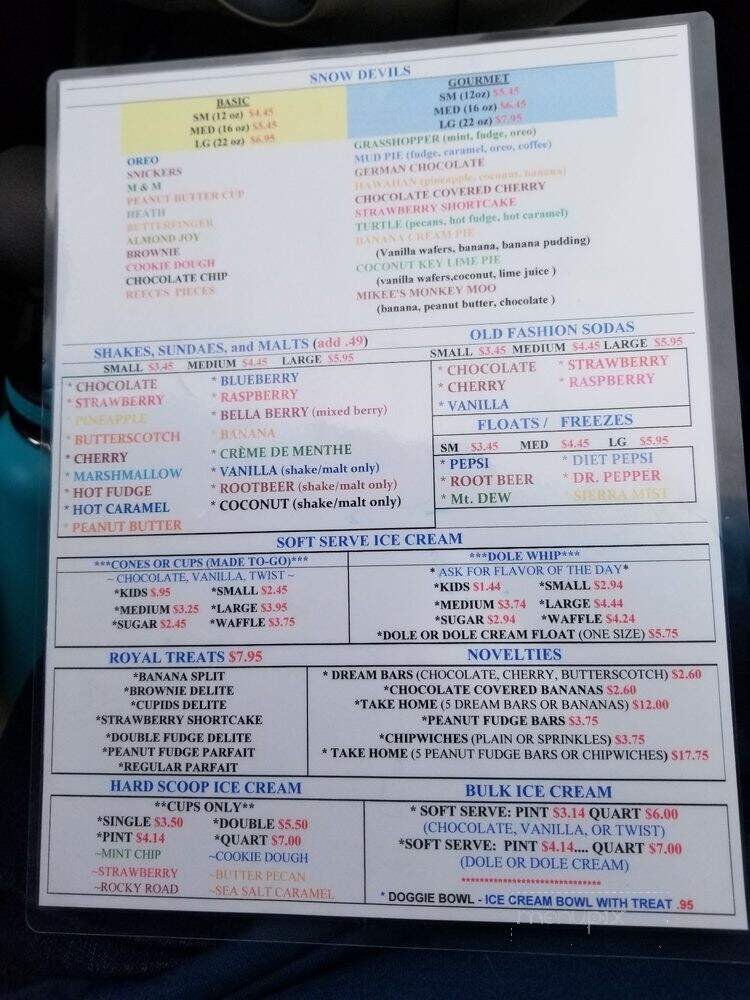 SNOW DEVILS
BASIC
SM (12 oz) $4.45
MED (16 oz) $5.45
LG (22 oz) $6.95
OREO
SNICKERS
M & M
PEANUT BUTTER CUP
HEATH
BUTTERFINGER
ALMOND JOY
BROWNIE
COOKIE DOUGH
CHOCOLATE CHIP
REECES PIECES
GOURMET
SM (12oz) $5.45
MED (16 oz) $6.45
LG (22 oz) $7.95
GRASSHOPPER (mint, fudge, oreo)
MUD PIE (fudge, caramel, oreo, coffee)
GERMAN CHOCOLATE
HAWAIIAN (pineapple, coconut, banana)
CHOCOLATE COVERED CHERRY
STRAWBERRY SHORTCAKE
TURTLE (pecans, hot fudge, hot caramel)
BANANA CREAM PIE
(Vanilla wafers, banana, banana pudding)
COCONUT KEY LIME PIE
(vanilla wafers,coconut, lime juice )
MIKEE'S MONKEY MOO
(banana, peanut butter, chocolate )
SHAKES, SUNDAES, and MALTS (add .49)
SMALL $3.45 MEDIUM $4.45 LARGE $5.95
* CHOCOLATE
* STRAWBERRY
* PINEAPPLE
* BUTTERSCOTCH
* CHERRY
* MARSHMALLOW
* HOT FUDGE
* HOT CARAMEL
* PEANUT BUTTER
* BLUEBERRY
* RASPBERRY
* BELLA BERRY (mixed berry)
* BANANA
* CRÈME DE MENTHE
* VANILLA (shake/malt only)
* ROOTBEER (shake/malt only)
* COCONUT (shake/malt only)
OLD FASHION SODAS
SMALL $3.45 MEDIUM $4.45 LARGE $5.95
* CHOCOLATE * STRAWBERRY
* CHERRY * RASPBERRY
* VANILLA
FLOATS / FREEZES
SM $3.45 MED $4.45 LG $5.95
* PEPSI * DIET PEPSI
* ROOT BEER * DR. PEPPER
* Mt. DEW * SIERRA MIST
SOFT SERVE ICE CREAM
***CONES OR CUPS (MADE TO-GO)***
~ CHOCOLATE, VANILLA, TWIST ~
*KIDS $.95 *SMALL $2.45
*MEDIUM $3.25 *LARGE $3.95
*SUGAR $2.45 *WAFFLE $3.75
***DOLE WHIP***
* ASK FOR FLAVOR OF THE DAY*
*KIDS $1.44 *SMALL $2.94
*MEDIUM $3.74 *LARGE $4.44
*SUGAR $2.94 *WAFFLE $4.24
*DOLE OR DOLE CREAM FLOAT (ONE SIZE) $5.75
ROYAL TREATS $7.95
*BANANA SPLIT
*BROWNIE DELITE
*CUPIDS DELITE
*STRAWBERRY SHORTCAKE
*DOUBLE FUDGE DELITE
*PEANUT FUDGE PARFAIT
*REGULAR PARFAIT
NOVELTIES
* DREAM BARS (CHOCOLATE, CHERRY, BUTTERSCOTCH) $2.60
*CHOCOLATE COVERED BANANAS $2.60
*TAKE HOME (5 DREAM BARS OR BANANAS) $12.00
*PEANUT FUDGE BARS $3.75
*CHIPWICHES (PLAIN OR SPRINKLES) $3.75
* TAKE HOME (5 PEANUT FUDGE BARS OR CHIPWICHES) $17.75
HARD SCOOP ICE CREAM
**CUPS ONLY**
*SINGLE $3.50 *DOUBLE $5.50
*PINT $4.14 *QUART $7.00
~MINT CHIP ~COOKIE DOUGH
~STRAWBERRY ~BUTTER PECAN
~ROCKY ROAD ~SEA SALT CARAMEL
BULK ICE CREAM
* SOFT SERVE: PINT $3.14 QUART $6.00
(CHOCOLATE, VANILLA, OR TWIST)
*SOFT SERVE: PINT $4.14.... QUART $7.00
(DOLE OR DOLE CREAM)
******************************
* DOGGIE BOWL - ICE CREAM BOWL WITH TREAT .95
menupix